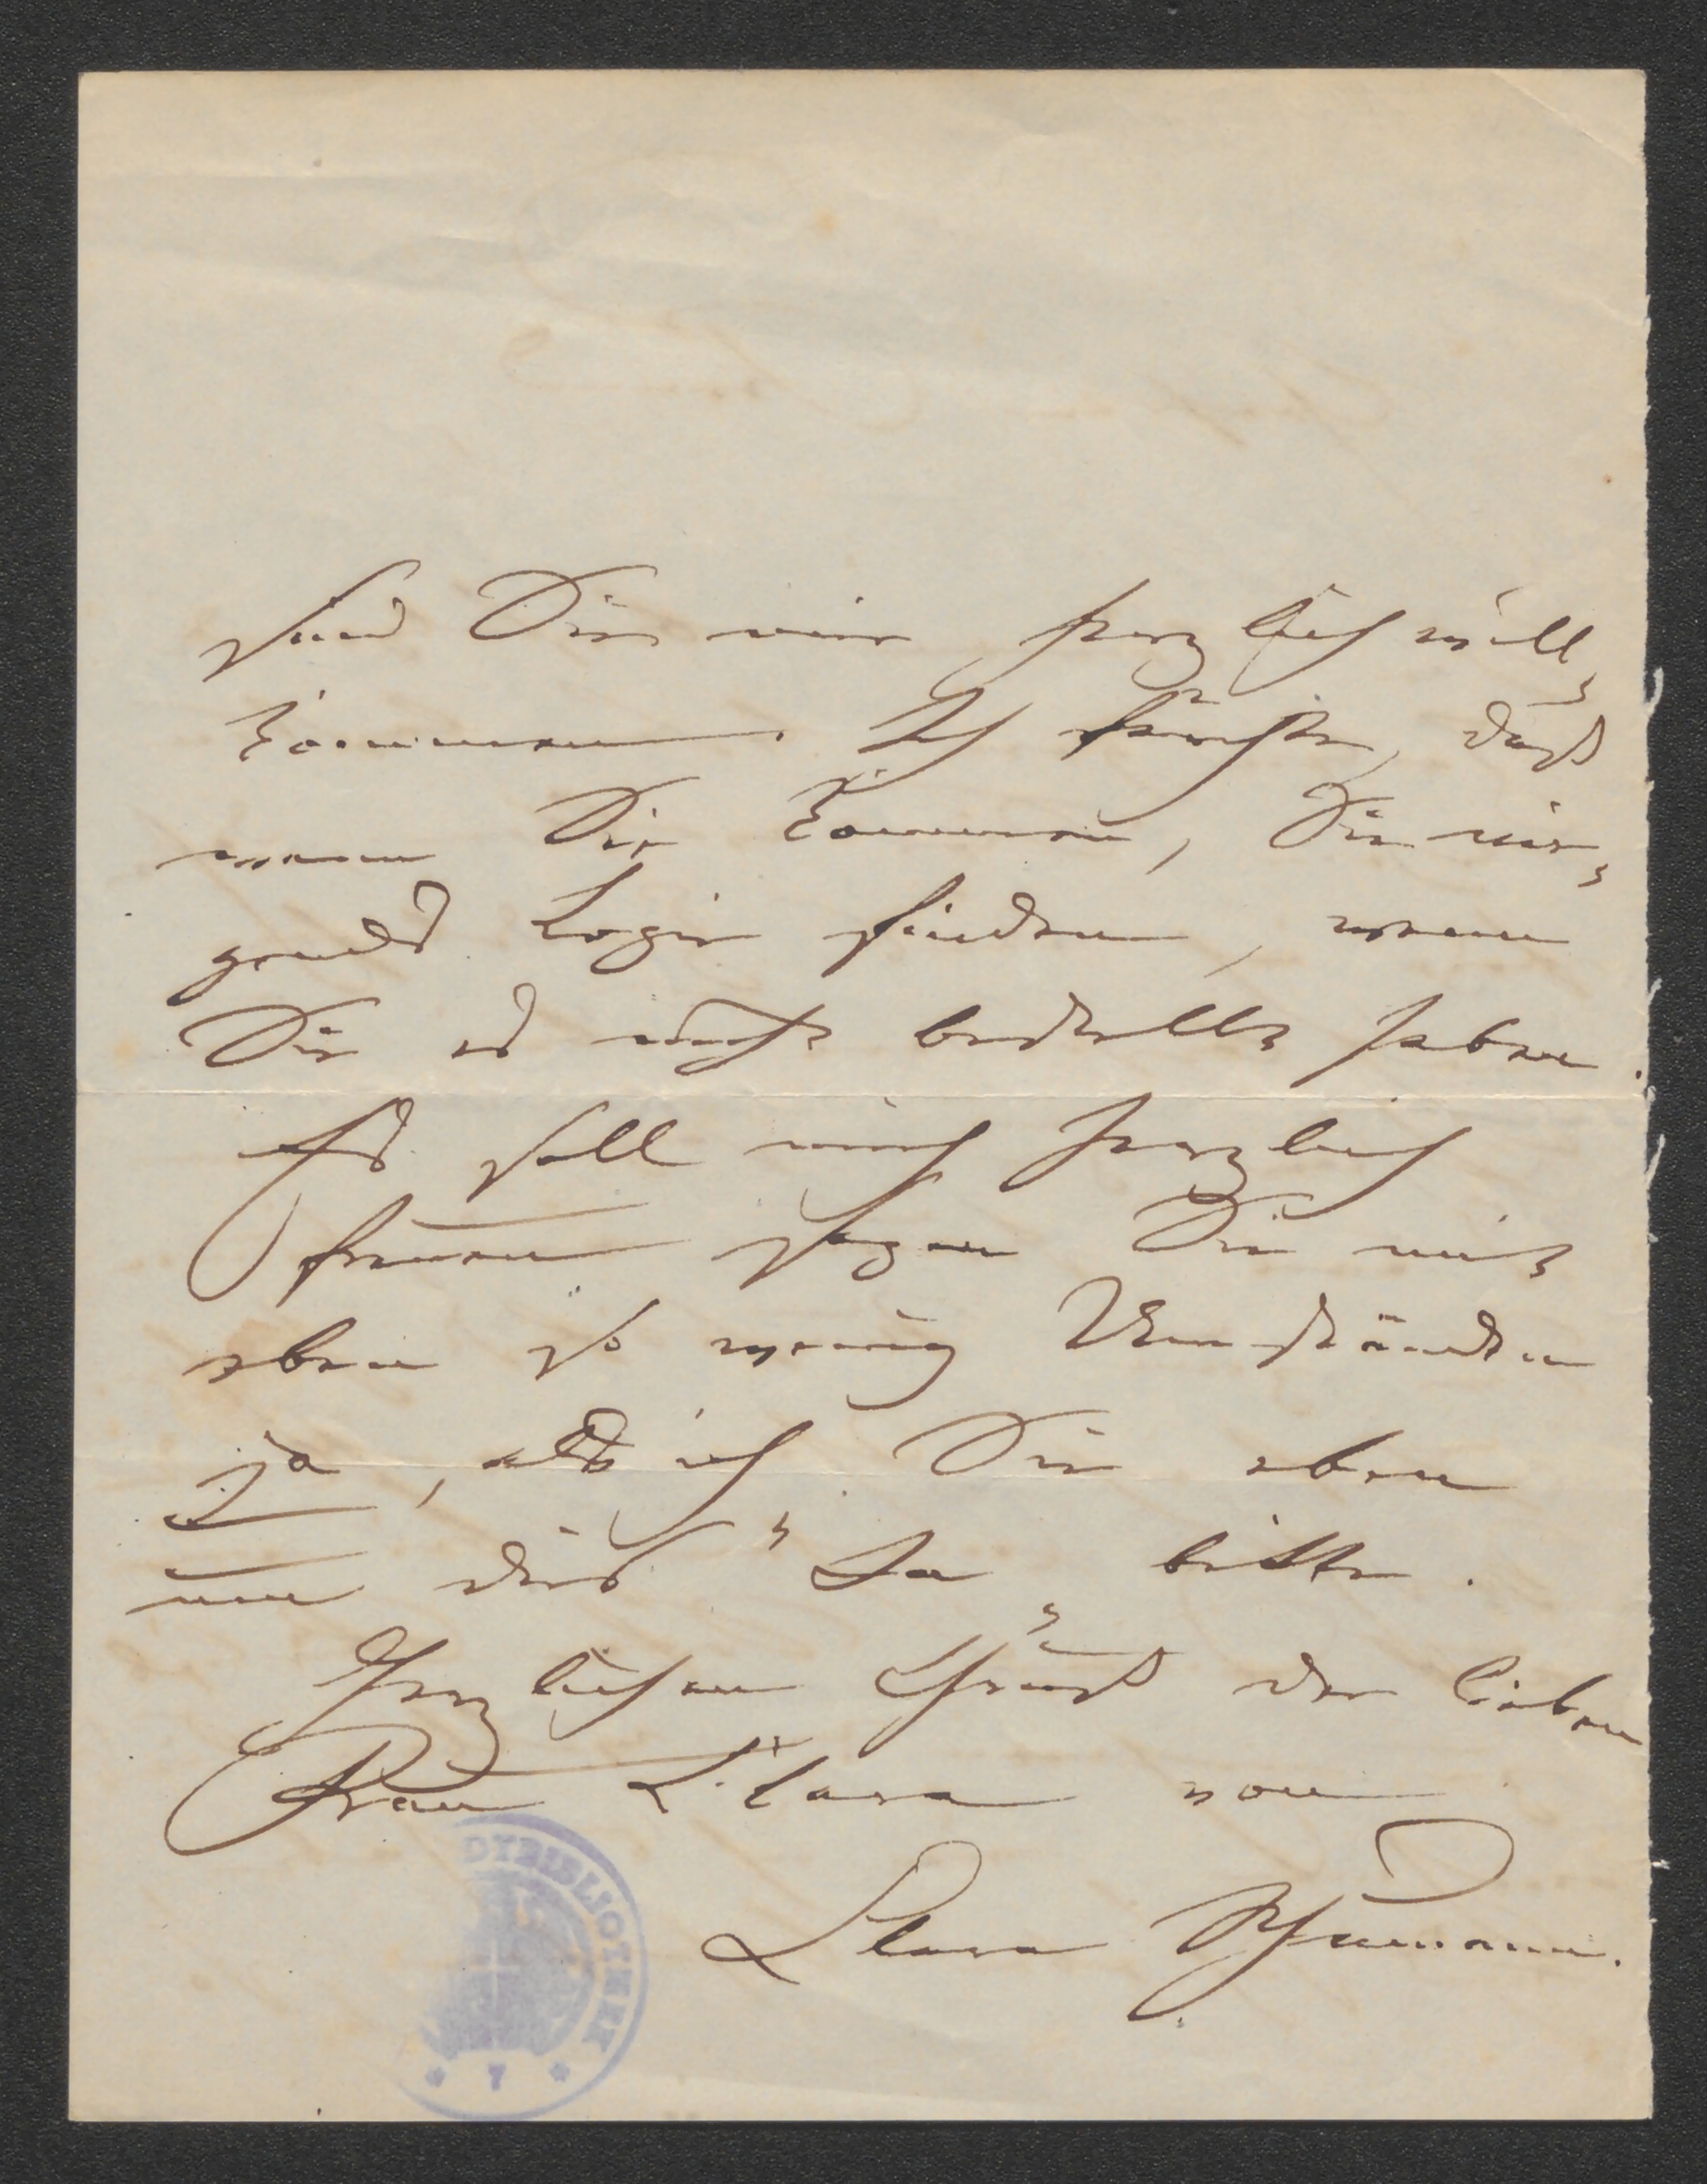 sind Sie mir herzlich will-
kommen. Ich fürchte, daß
wenn Sie kommen, Sie nir-
gends Logis finden, wenn
Sie es nicht bestellt haben.
Es soll mich herzlich
freuen sagen Sie mit
eben so wenig Umständen
ja, als ich Sie eben
um dies "Ja" bitte.
Herzlichen Gruß der lieben
Frau Klara von
Clara Schumann.
DTBIBLIOTHEK
* 7 *